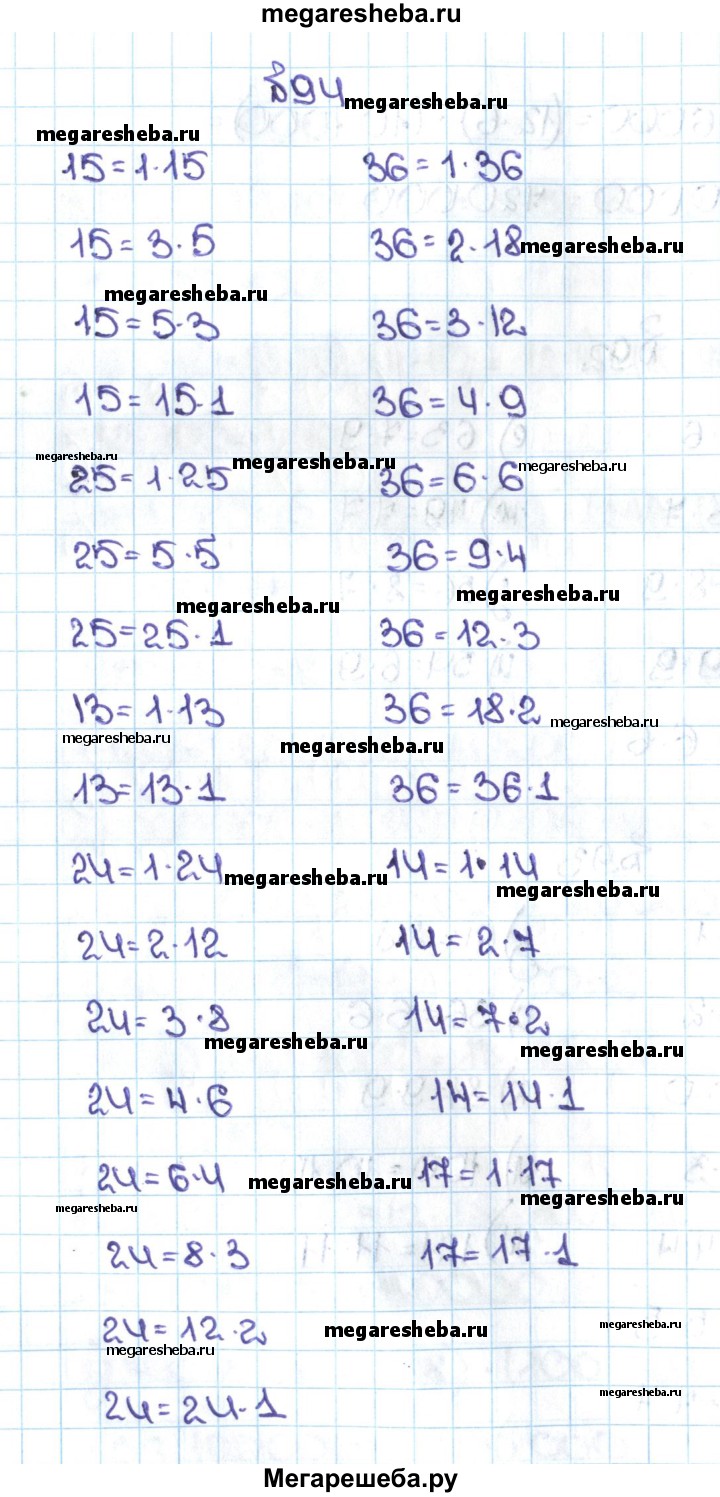 megaresheba.ru
№94
megaresheba.ru
megaresheba.ru
15=1·15
15=3·5
megaresheba.ru
15=5·3
15=15·1
megaresheba.ru
megaresheba.ru
25=1·25
25=5·5
megaresheba.ru
25=25·1
13=1·13
megaresheba.ru
megaresheba.ru
13=13·1
24=1·24
megaresheba.ru
24=2·12
24=3·8
megaresheba.ru
24=4·6
24=6·4
megaresheba.ru
megaresheba.ru
24=8·3
24=12·2
megaresheba.ru
megaresheba.ru
24=24·1
36=1·36
36=2·18
megaresheba.ru
36=3·12
36=4·9
36=6·6
megaresheba.ru
36=9·4
megaresheba.ru
36=12·3
36=18·2
megaresheba.ru
36=36·1
14=1·14
megaresheba.ru
14=2·7
14=7·2
megaresheba.ru
14=14·1
17=1·17
megaresheba.ru
17=17·1
megaresheba.ru
megaresheba.ru
Мегарешеба.ру